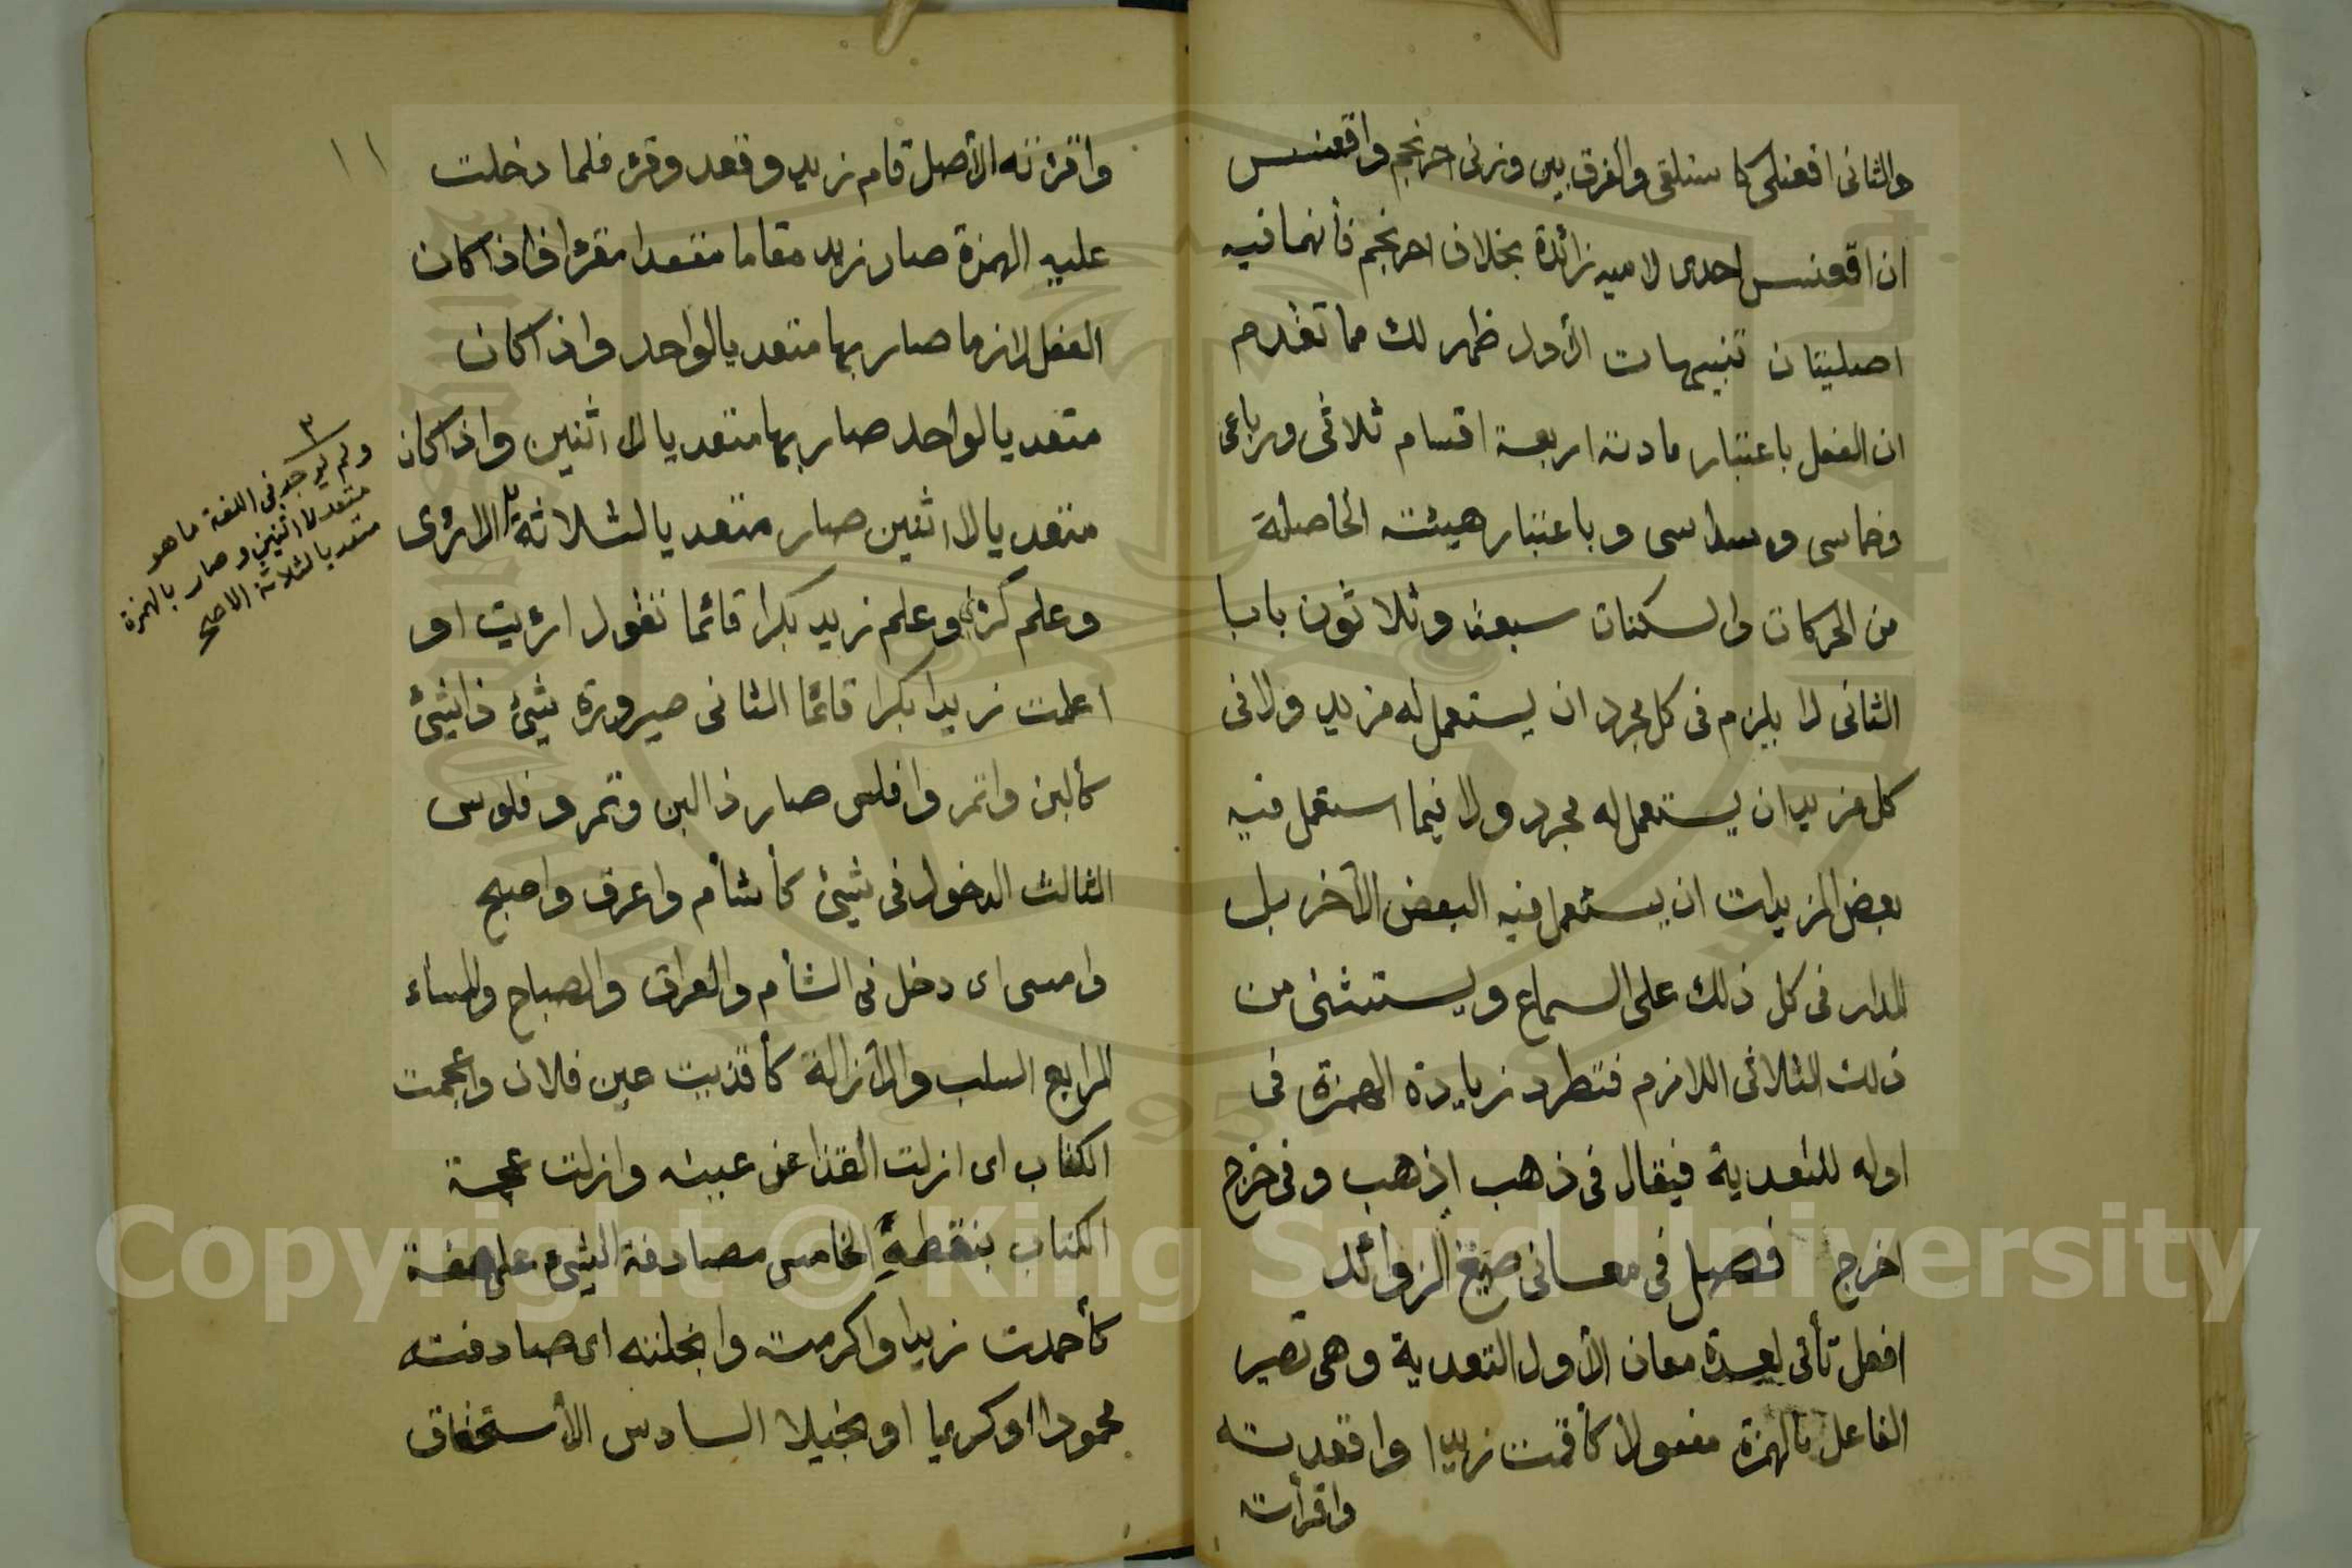 والثانى افعنلى كاسلنقى والفرق بين وزنى احرنجم واقعنسس
ان اقعنسس احدى لاميه زائدة بخلاف احرنجم فأنهما فيه
اصليتان تنبيهات الأول ظهر لك مما تقدم
ان الفعل باعتبار مادته اربعة اقسام ثلاثى ورباعى
وخماسى وسداسى وباعتبار هيئته الحاصلة
من الحركات والسكنات سبعة وثلاثون بابا
الثانى لا يلزم فى كل مجرد ان يستعمل له مزيد ولا فى
كل مزيد ان يستعمل له مجرد ولا فيما استعمل فيه
بعض المزيدات ان يستعمل فيه البعض الآخر بل
المدار فى كل ذلك على السماع ويستثنى من
ذلك الثلاثى اللازم فتطرد زيادة الهمزة فى
اوله للتعدية فيقال فى ذهب اذهب وفى خرج
اخرج فصل فى معانى صيغ الزوائد
افعل تأتى لعدة معان الأول التعدية وهى تصير
الفاعل بالهمزة مفعولا كأقمت زيدا واقعدته
واقرأت
١١
واقرئته الأصل قام زيد وقعد وقرئ فلما دخلت
عليه الهمزة صار زيد مقاما مقعدا مقرئا فاذا كان
الفعل لازما صار بها متعديا لواحد واذا كان
متعديا لواحد صار بها متعديا لاثنين واذا كان
متعديا لاثنين صار متعديا لثلاثة ٣ الارؤى
وعلم كرئى وعلم زيد بكرا قائما تقول ارئيت او
اعلمت زيدا بكرا قائما الثانى صيرورة شئ ذا شئ
كألبن واتمر وافلس صار ذا لبن وتمر وفلوس
الثالث الدخول فى شئ كأشأم واعرق واصبح
وامسى اى دخل فى الشأم والعراق والصباح والمساء
الرابع السلب والأزالة كأقذيت عين فلان واعجمت
الكتاب اى ازلت القذا عن عينه وازلت عجمة
الكتاب بنقطه الخامس مصادفة الشئ على صفة
كأحمدت زيدا واكرمته وابخلته اى صادفته
محمودا او كريما او بخيلا السادس الأستحقاق
٣
ولم يوجد فى اللغة ما هو
متعد لاثنين وصار بالهمزة
متعديا لثلاثة الا صح
Copyright © King Saud University